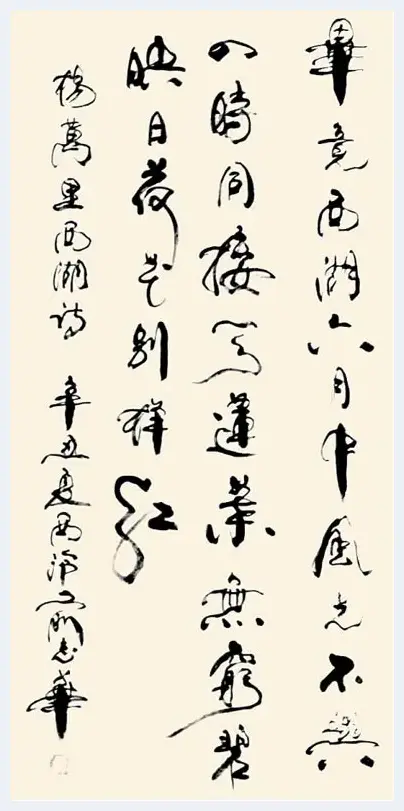 畢竟西湖六月中風光不與
四時同接天蓮葉無窮碧
映日荷花別樣紅
楊萬里西湖詩 辛丑夏西泠俞志華